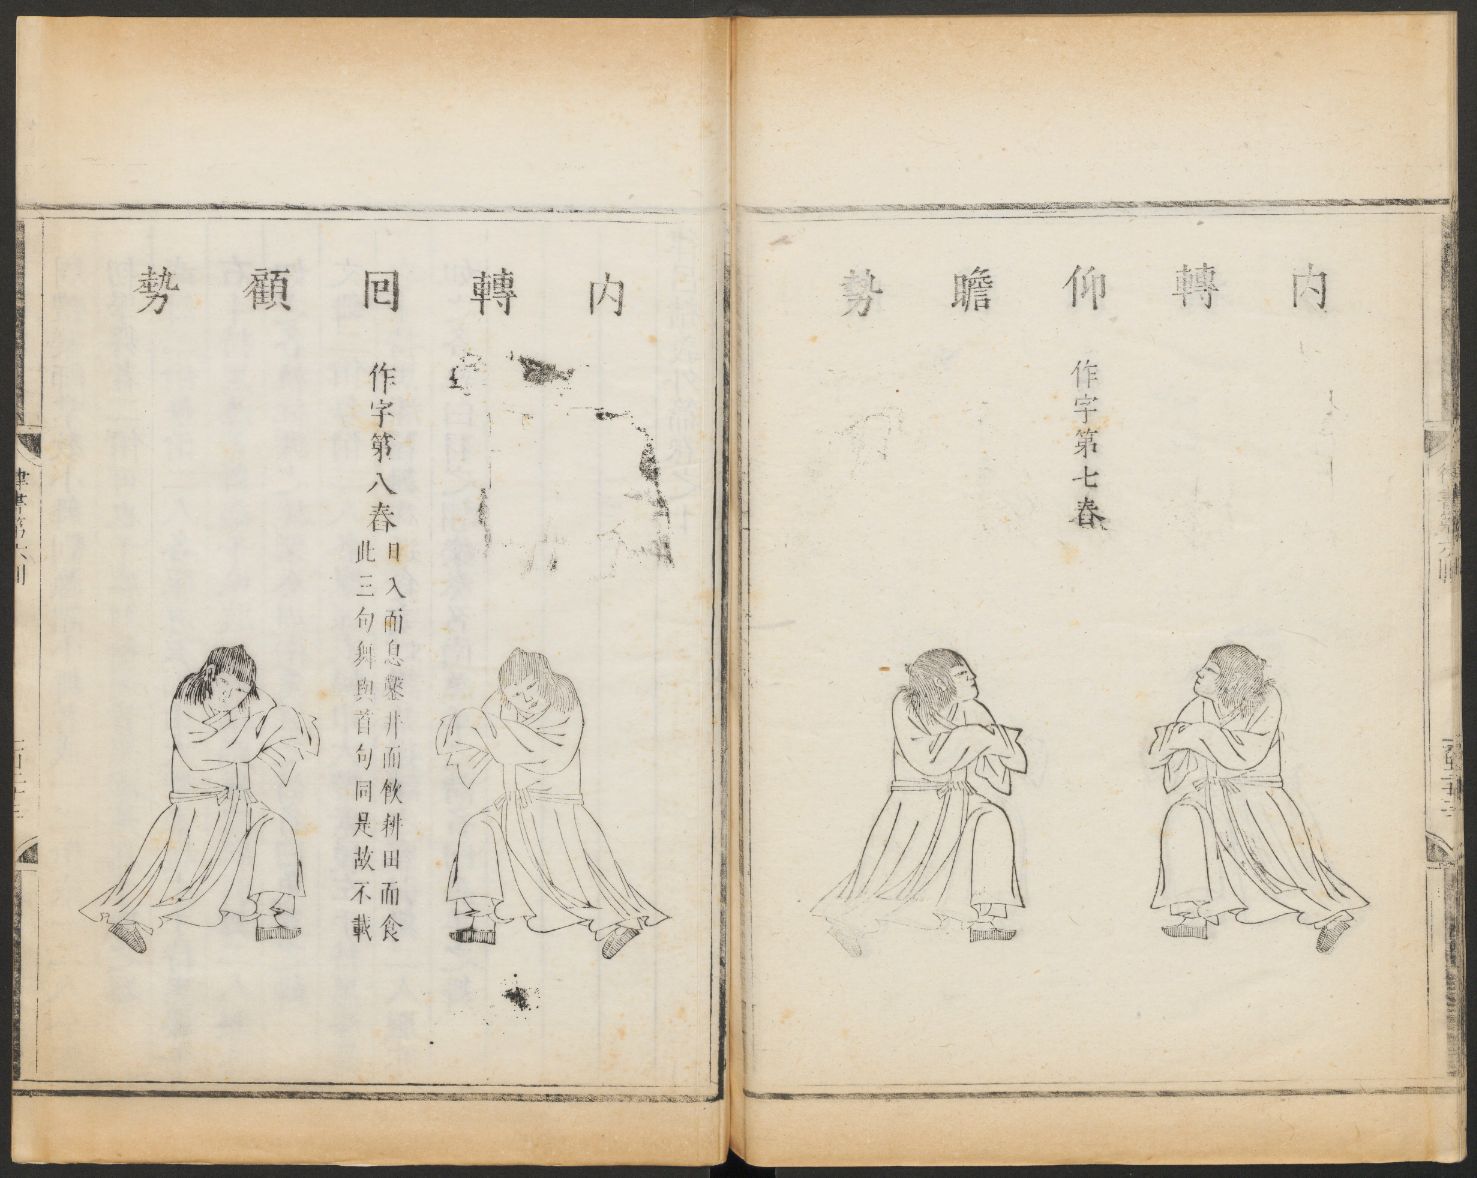 内轉仰瞻勢
作字第七舂
内轉囘顧勢
作字第八舂
日入而息鑿井而飲耕田而食
此三句舞與首句同是故不載
律書第六